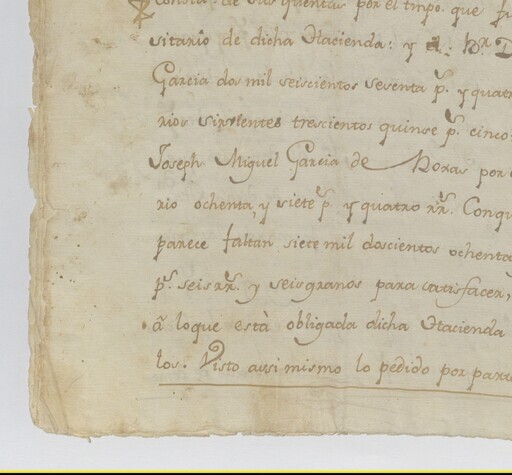 consta: de sus quentas por el tmpo. que
sitario de dicha Hacienda: y
Garcia dos mil seiscientos sesenta p.s y quatr
rios sirvientes trescientos quinse p.s cinco
Joseph Miguel Garcia de Roxas por
rio ochenta, y siete p.s y quatro rr.s Conqu
parece faltan siete mil doscientos ochenta
p.s seis rr.s y seis granos para satisfacer,
ã loque està obligada dicha Hacienda
los. Visto assi mismo lo pedido por par